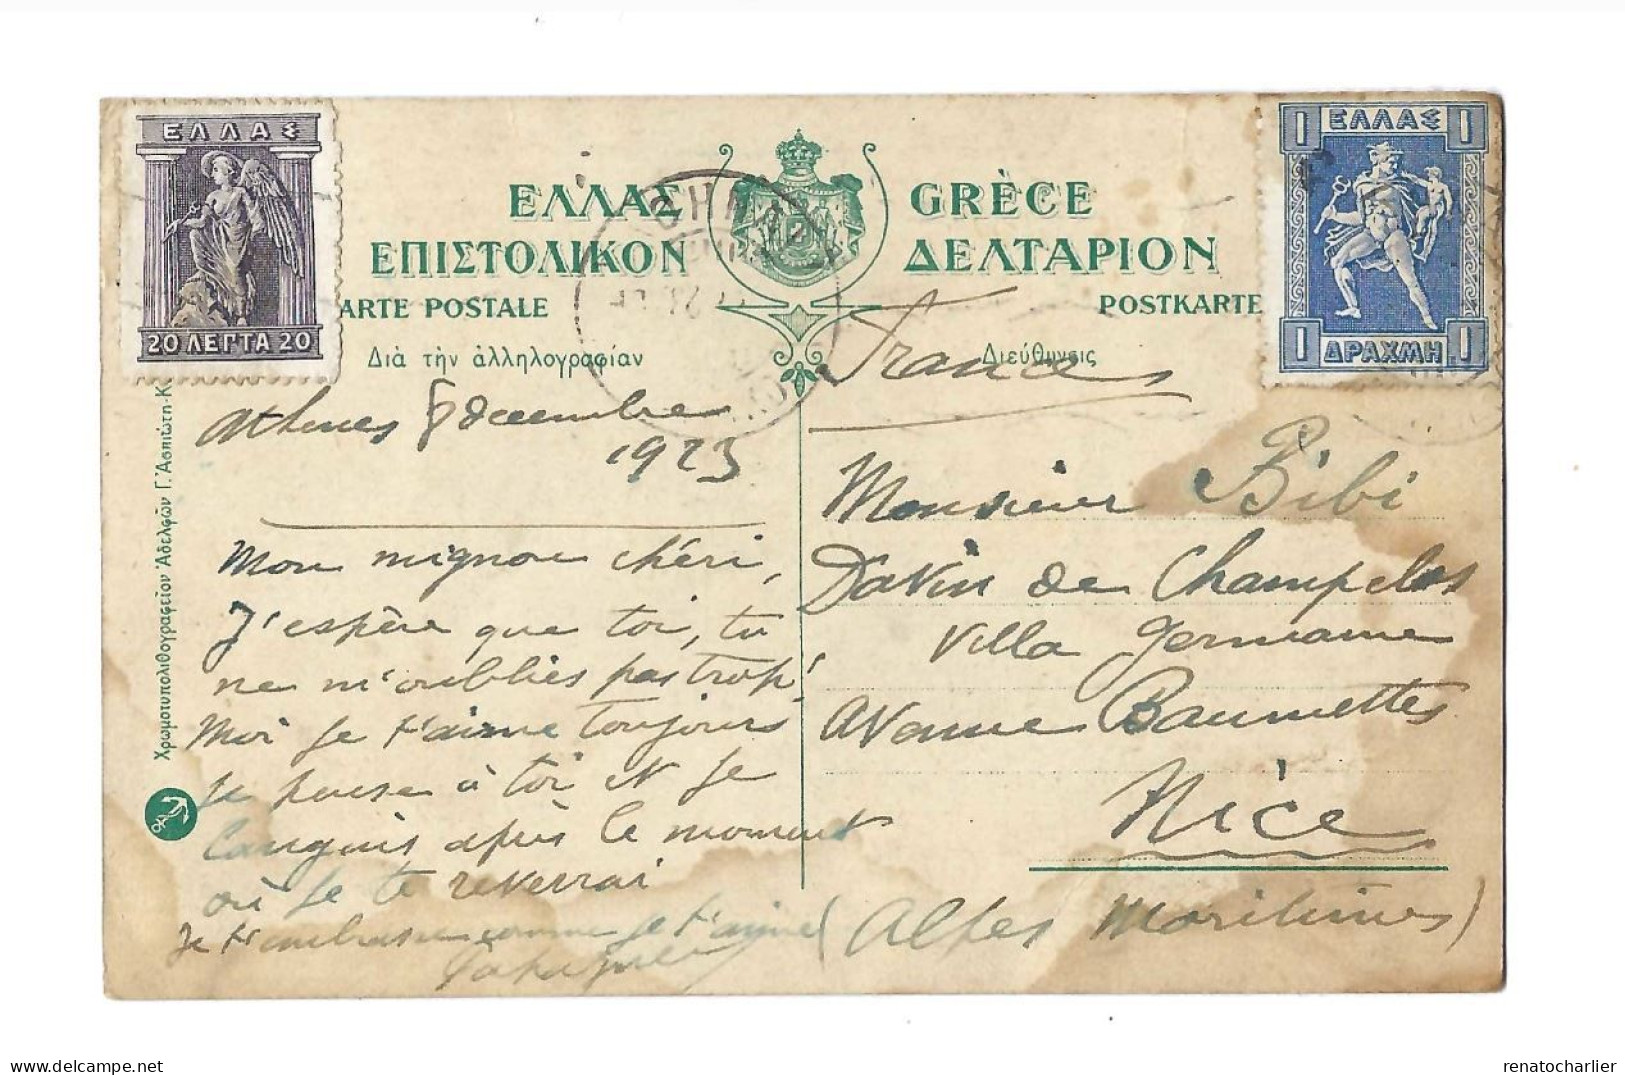 ΕΛΛΑΣ
20 ΛΕΠΤΑ 20
1 ΕΛΛΑΣ 1
1 ΔΡΑΧΜΗ 1
ΕΛΛΑΣ GRÈCE
ΕΠΙΣΤΟΛΙΚΟΝ ΔΕΛΤΑΡΙΟΝ
ARTE POSTALE POSTKARTE
Διὰ τὴν ἀλληλογραφίαν Διεύθυνσις
Χρωμοτυπολιθογραφεῖον Ἀδελφῶν Γ. Ἀσπιώτη-Κ
Athenes 8 decembre
1923
Mon mignon chéri,
J'espère que toi, tu
ne m'oublies pas trop!
Moi je t'aime toujours
je pense à toi et je
languis après le moment
où je te reverrai
Je t'embrasse comme je t'aime
France
Monsieur Bibi
Davin de Champclos
Villa Germaine
Avenue Baumettes
Nice
(Alpes Maritimes)
renatocharlier